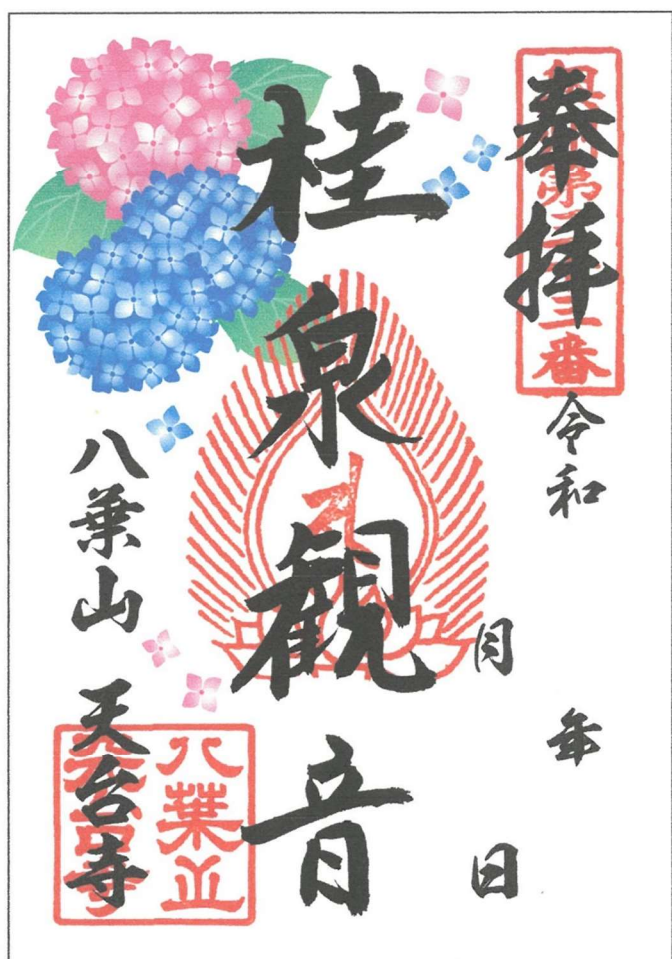 奉拝
令和　年
月　日
桂泉観音
八葉山　天台寺
八葉山
天台寺